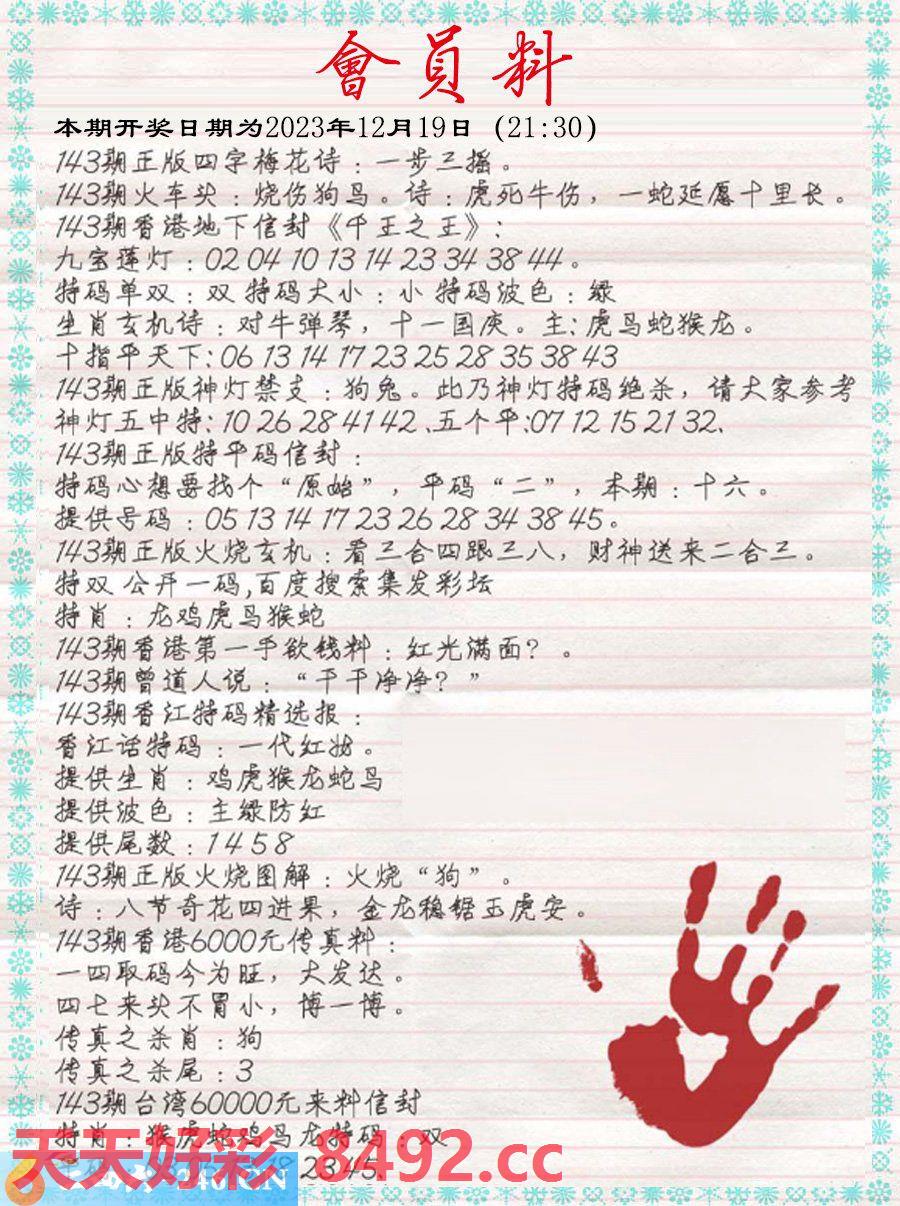 會員料
本期开奖日期为2023年12月19日 (21:30)
143期正版四字梅花诗：一步三摇。
143期火车头：烧伤狗鸟。诗：虎死牛伤，一蛇延愿十里长。
143期香港地下信封《千王之王》：
九宝莲灯：02 04 10 13 14 23 34 38 44。
特码单双：双 特码大小：小 特码波色：绿
生肖玄机诗：对牛弹琴，十一国庆。主：虎鸟蛇猴龙。
十指平天下：06 13 14 17 23 25 28 35 38 43
143期正版神灯禁支：狗兔。此乃神灯特码绝杀，请大家参考
神灯五中特：10 26 28 41 42、五个平：07 12 15 21 32、
143期正版特平码信封：
特码心想要找个“原始”，平码“二”，本期：十六。
提供号码：05 13 14 17 23 26 28 34 38 45。
143期正版火烧玄机：看三合四跟三八，财神送来二合三。
特双 公开一码,百度搜索集发彩坛
特肖：龙鸡虎马猴蛇
143期香港第一手欲钱料：红光满面？。
143期曾道人说：“干干净净？”
143期香江特码精选报：
香江话特码：一代红妆。
提供生肖：鸡虎猴龙蛇马
提供波色：主绿防红
提供尾数：1 4 5 8
143期正版火烧图解：火烧“狗”。
诗：八节奇花四进果，金龙稳锯玉虎安。
143期香港6000元传真料：
一四取码今为旺，大发达。
四七来头不冒小，博一博。
传真之杀肖：狗
传真之杀尾：3
143期台湾60000元来料信封
特肖：猴虎蛇鸡马龙特码：双
23 45、
天天好彩 8492.cc